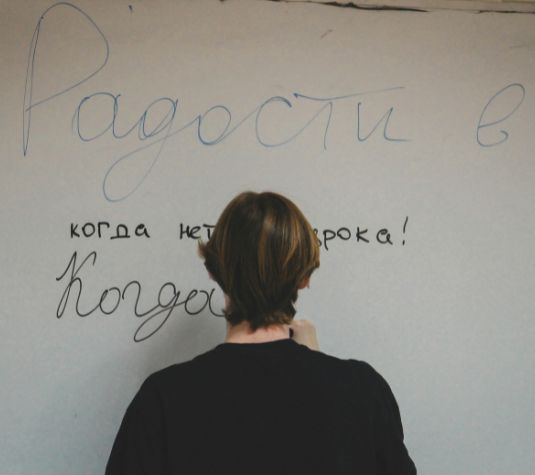 Радости в
когда нет
Когда